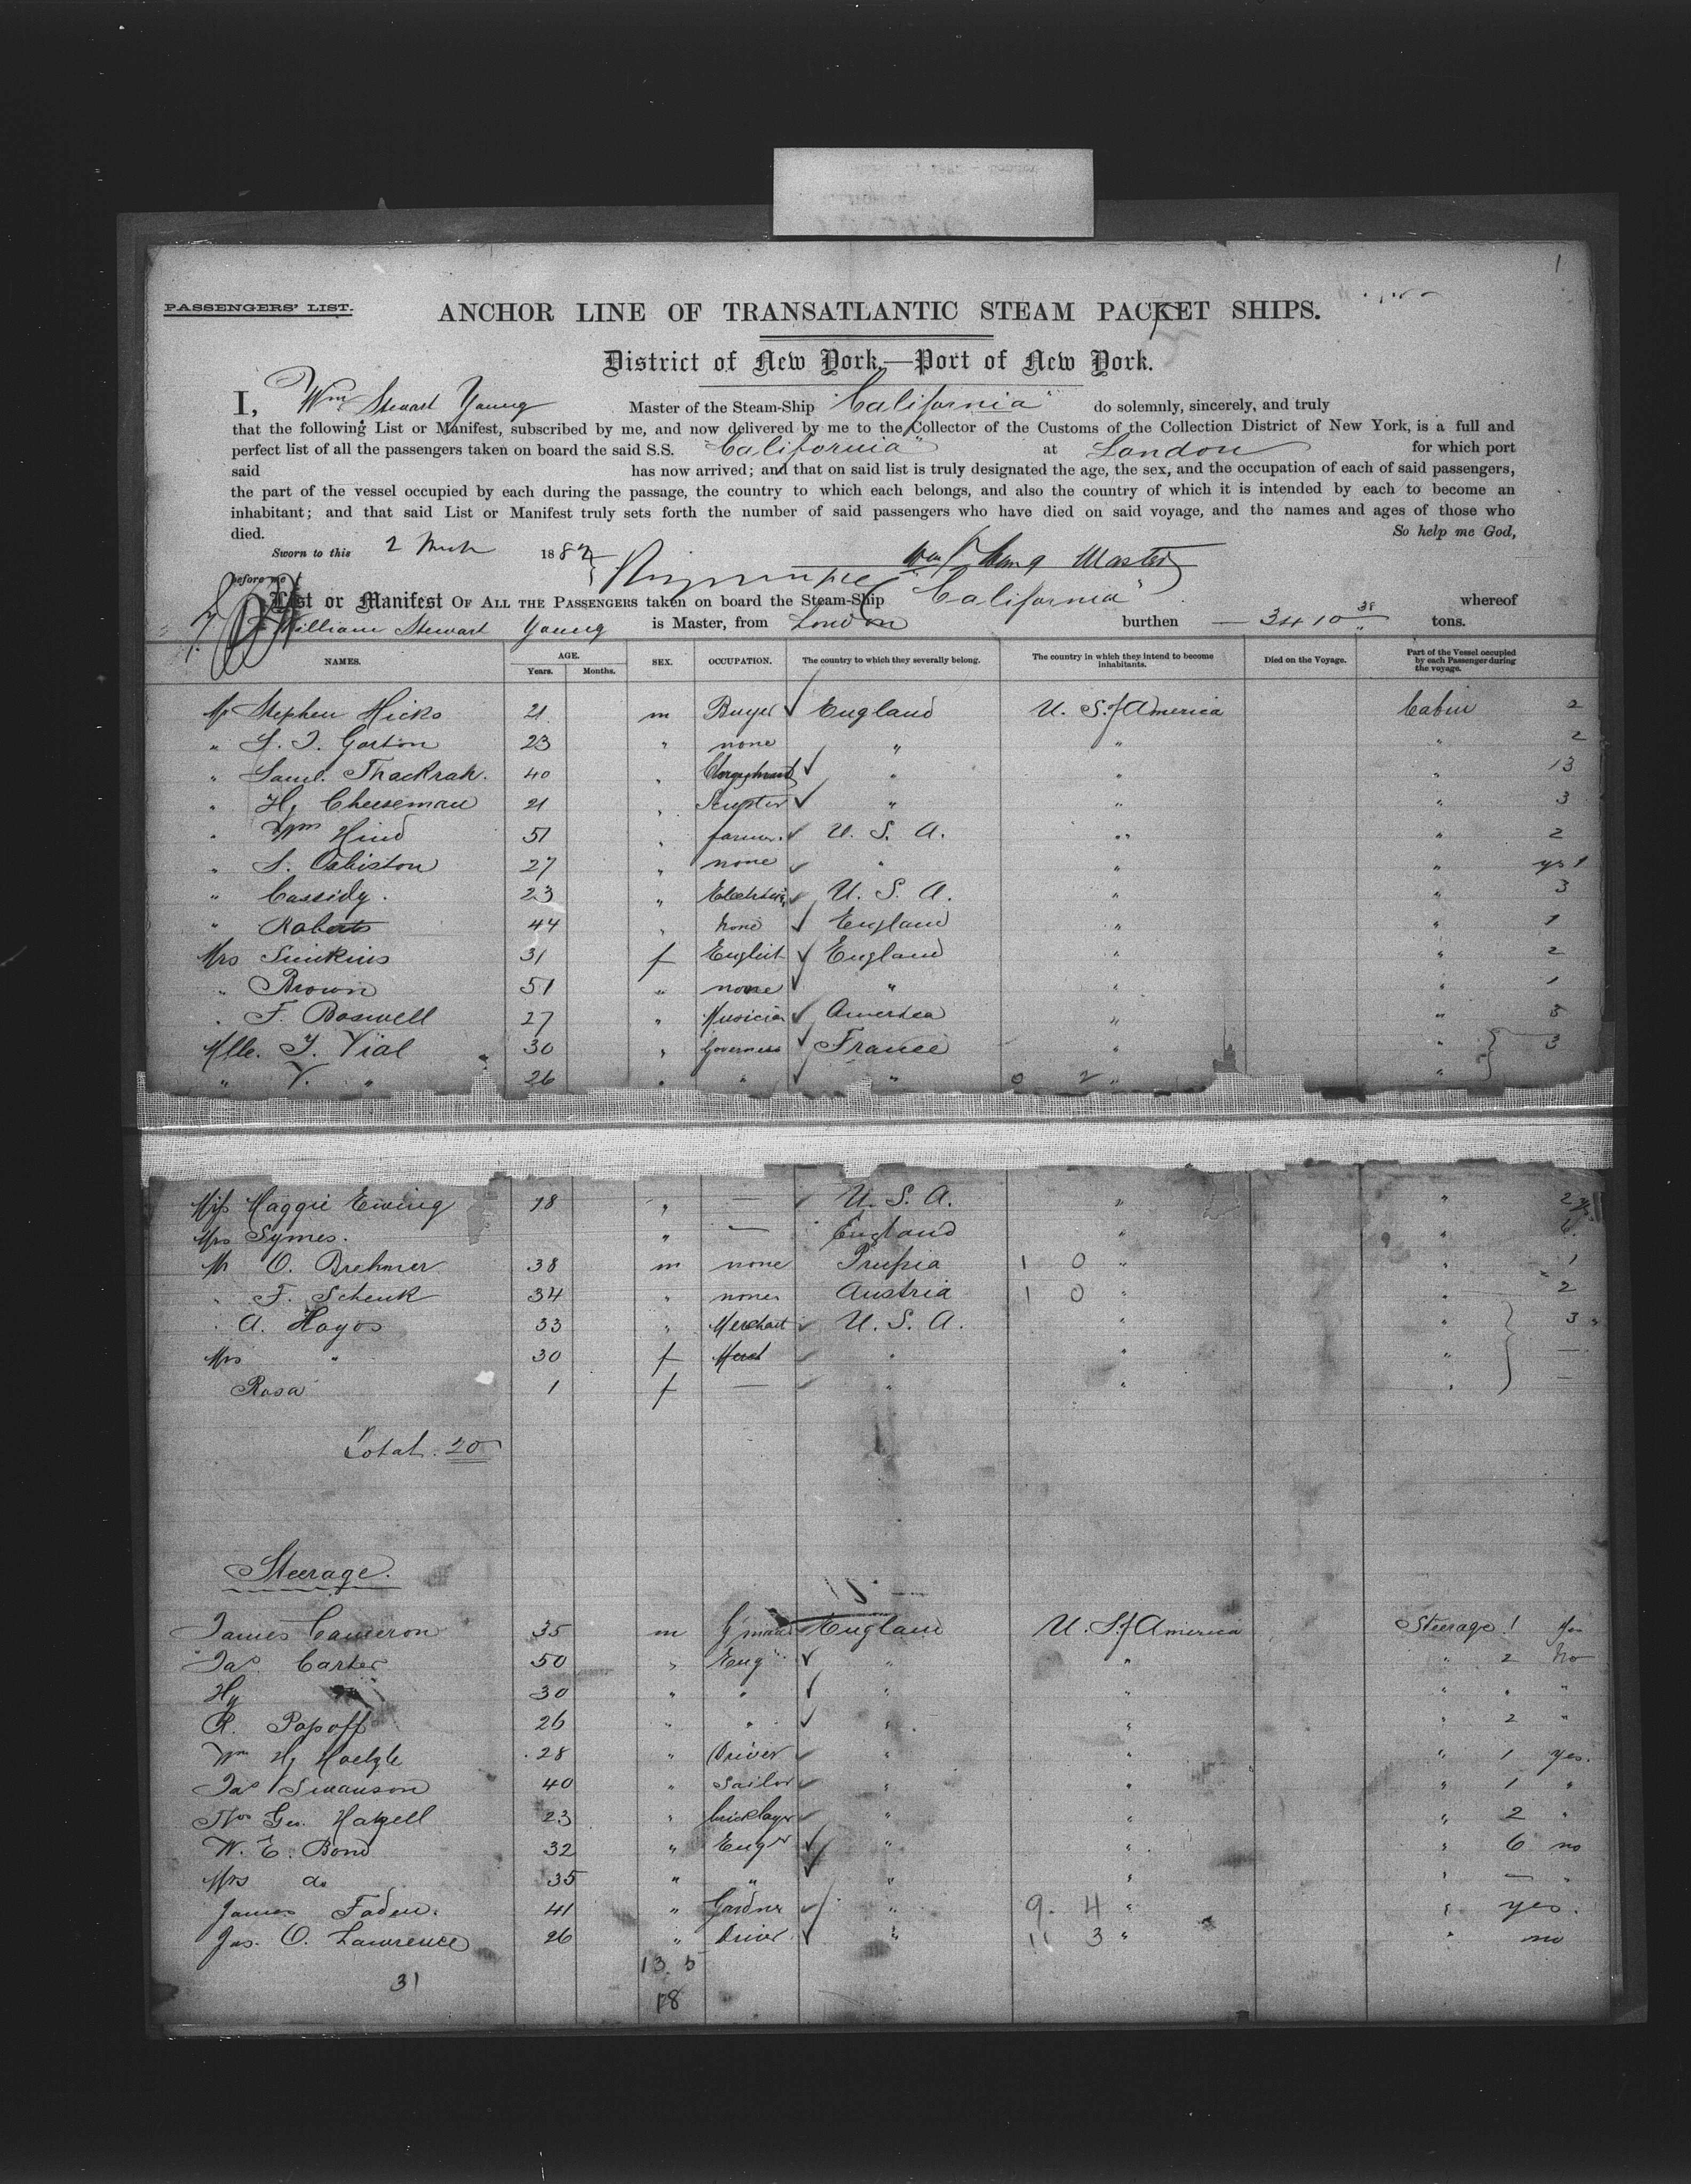 1
PASSENGERS' LIST.
ANCHOR LINE OF TRANSATLANTIC STEAM PACKET SHIPS.
District of New York,—Port of New York.
I, Wm Stewart Young Master of the Steam-Ship "California" do solemnly, sincerely, and truly
that the following List or Manifest, subscribed by me, and now delivered by me to the Collector of the Customs of the Collection District of New York, is a full and
perfect list of all the passengers taken on board the said S.S. "California" at London for which port
said has now arrived; and that on said list is truly designated the age, the sex, and the occupation of each of said passengers,
the part of the vessel occupied by each during the passage, the country to which each belongs, and also the country of which it is intended by each to become an
inhabitant; and that said List or Manifest truly sets forth the number of said passengers who have died on said voyage, and the names and ages of those who
died. So help me God,
Sworn to this 2 Mch 1882 Master
before me
List or Manifest OF ALL THE PASSENGERS taken on board the Steam-Ship "California" whereof
William Stewart Young is Master, from London burthen 3410 38 tons.
NAMES. AGE. Years. Months. SEX. OCCUPATION. The country to which they severally belong. The country in which they intend to become inhabitants. Died on the Voyage. Part of the Vessel occupied by each Passenger during the voyage.
Mr Stephen Hicks 21 m Buyer England U. S. of America Cabin 2
" S. J. Gorton 23 " none " " " 2
" Saml. Thackrah. 40 " Clergyman " " " 13
" Hy Cheeseman 21 " " " " 3
" Wm Hind 51 " farmer U. S. A. " " 2
" S. 27 " none " " " 1
" Cassidy. 23 " U. S. A. " " 3
" Roberts 44 " None England " " 1
Mrs Simkins 31 f England " " 2
" Brown 51 " none " " " 1
" F. Boswell 27 " Musician America " " 5
Mlle. J. Vial 30 " Governess France " " 3
" V. " 26 " " " 0 2 " "
Miss Maggie Ewing 18 " — U. S. A. " " 2
Mrs Symes. " — England " " 6
Mr O. Brehmer 38 m none Prussia 1 0 " " 1
" F. Schenk 34 " none Austria 1 0 " " 2
" A. Hoyos 33 " Merchant U. S. A. " " 3
Mrs " 30 f " " " —
Rosa 1 f — " " " —
Total. 20
Steerage.
James Cameron 35 m England U. S. of America Steerage 1 Yes
Jas. Carter 50 " Eng " " " 2 No
Hy " 30 " " " " " " "
R. Popoff 26 " " " " " 2 "
Wm Hy Hoelzle 28 " Driver " " " 1 yes.
Jas Swanson 40 " Sailor " " " 1 "
Thos Geo. Hazell 23 " bricklayer " " " 2 "
W. E. Bond 32 " Engr " " " 6 no
Mrs do 35 " " " " " — "
James Faden. 41 " Gardner " 9. 4 " " yes.
Jas. O. Lawrence 26 " Driver " 11 3 " " no
31 13. 5
18